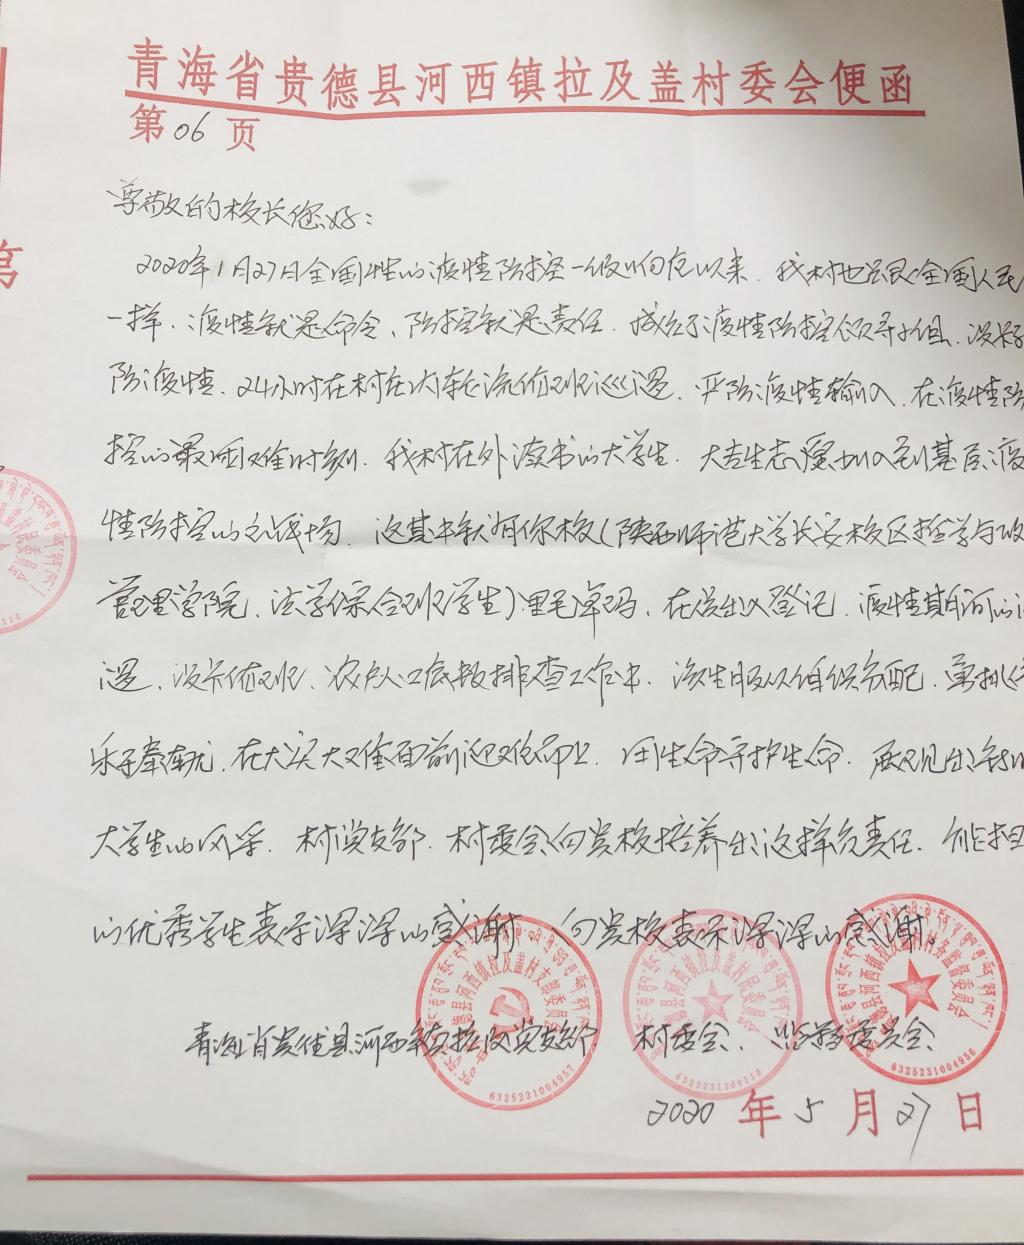 青海省贵德县河西镇拉及盖村委会便函
第06页
尊敬的校长您好:
2020年1月27日全国性的疫情防控一级响应以来.我村也跟全国人民
一样.疫情就是命令、防控就是责任.成立了疫情防控领导小组.设卡
防疫情.24小时在村在门轮流值班巡逻.严防疫情输入.在疫情防
控的最困难时刻.我村在外读书的大学生.大吉生志愿加入到基层疫
情防控的主战场.这其中就有你校(陕西师范大学长安校区哲学与政
管理学院.法学综合班学生)里毛卓玛.在党出入登记.疫情期间的
逻.设卡值班.农户人口底数排查工作中.该生服从组织分配.勇挑
乐于奉献.在大灾大难面前迎难而上.用生命守护生命.展现出新时
大学生的风采.村党支部.村委会向贵校培养出这样负责任.能担
的优秀学生表示深深的感谢 向贵校表示深深的感谢。
青海省贵德县河西镇拉及党支部 村委会、监督委员会
2020年5月27日
德县河西镇拉及盖村支部委员会
6325231004957
德县河西镇拉及盖村民委员会
德县河西镇拉及盖村村务监督委员会
6325231004956